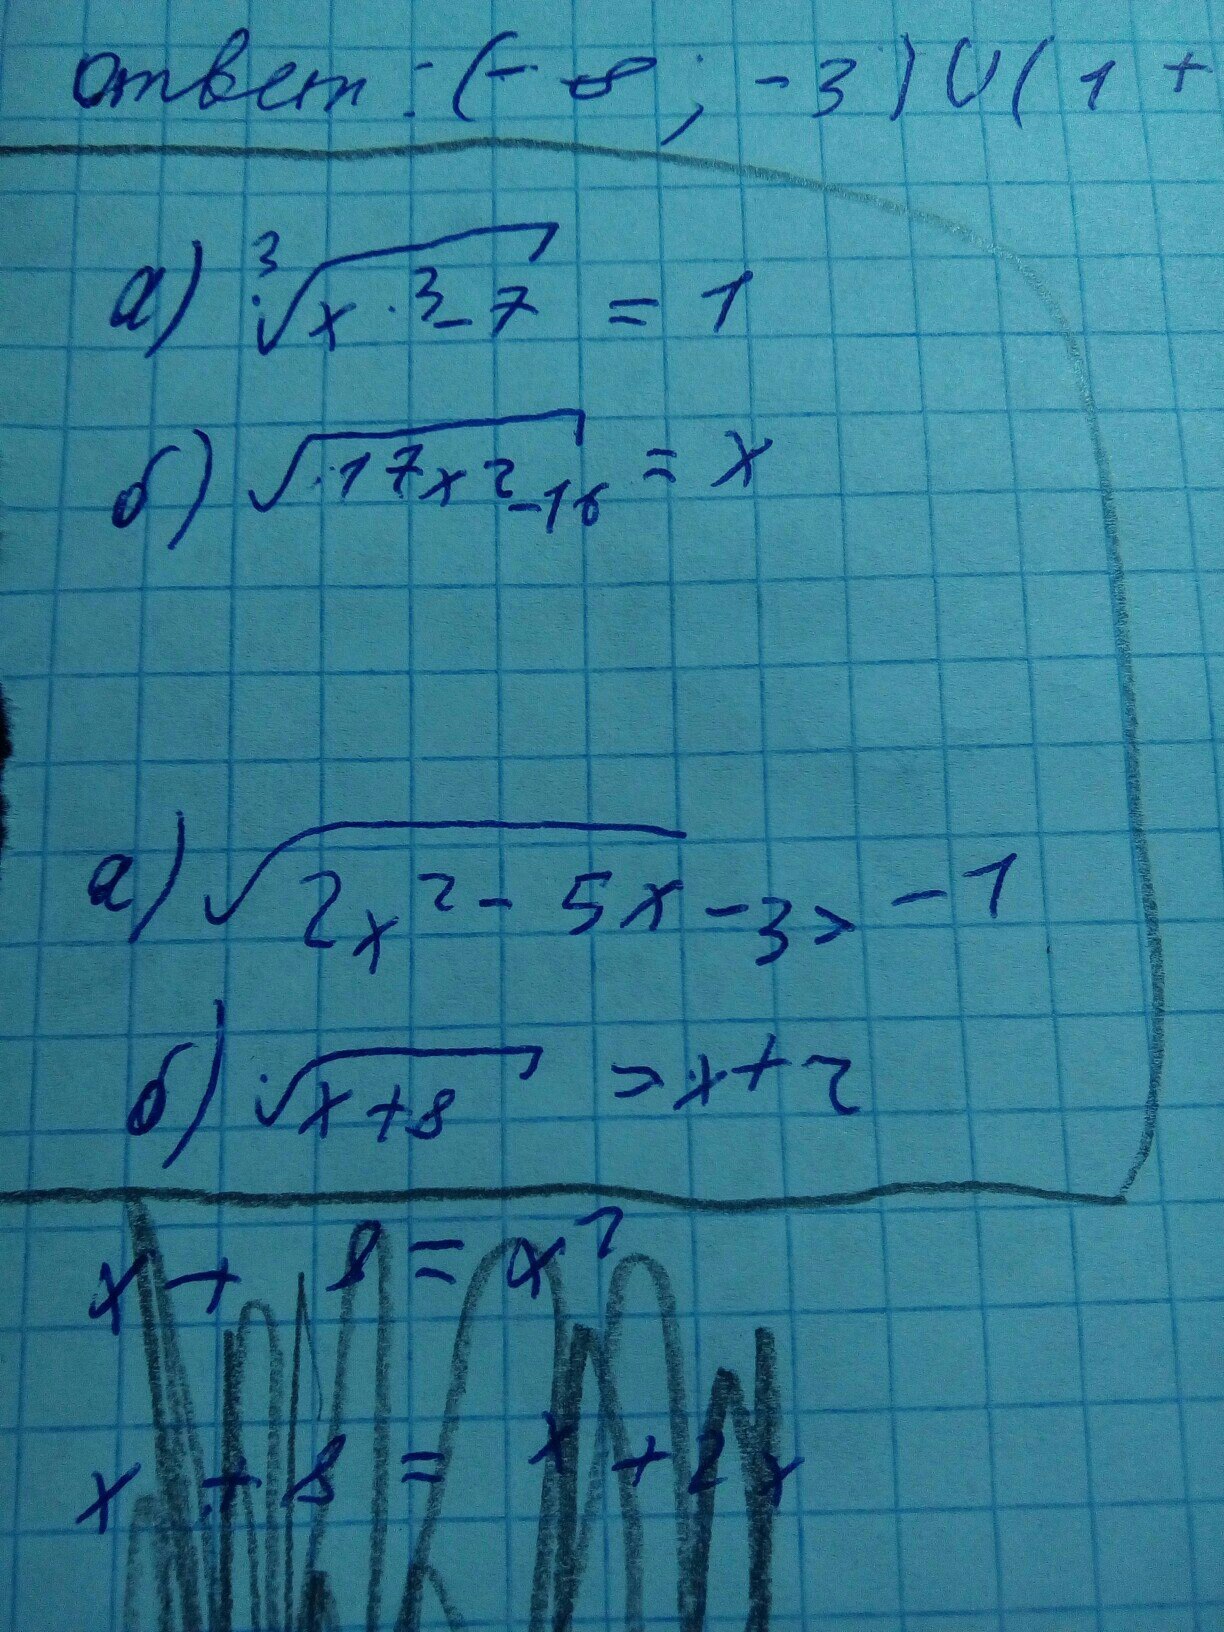 ответ: (-∞; -3) ∪ (1 +
а) ³√x³-7 = 1
б) √17x²-16 = x
а) √2x² - 5x -3> -1
б) √x+8 >x+2
x + 8 = x²
x + 8 = x + 2x